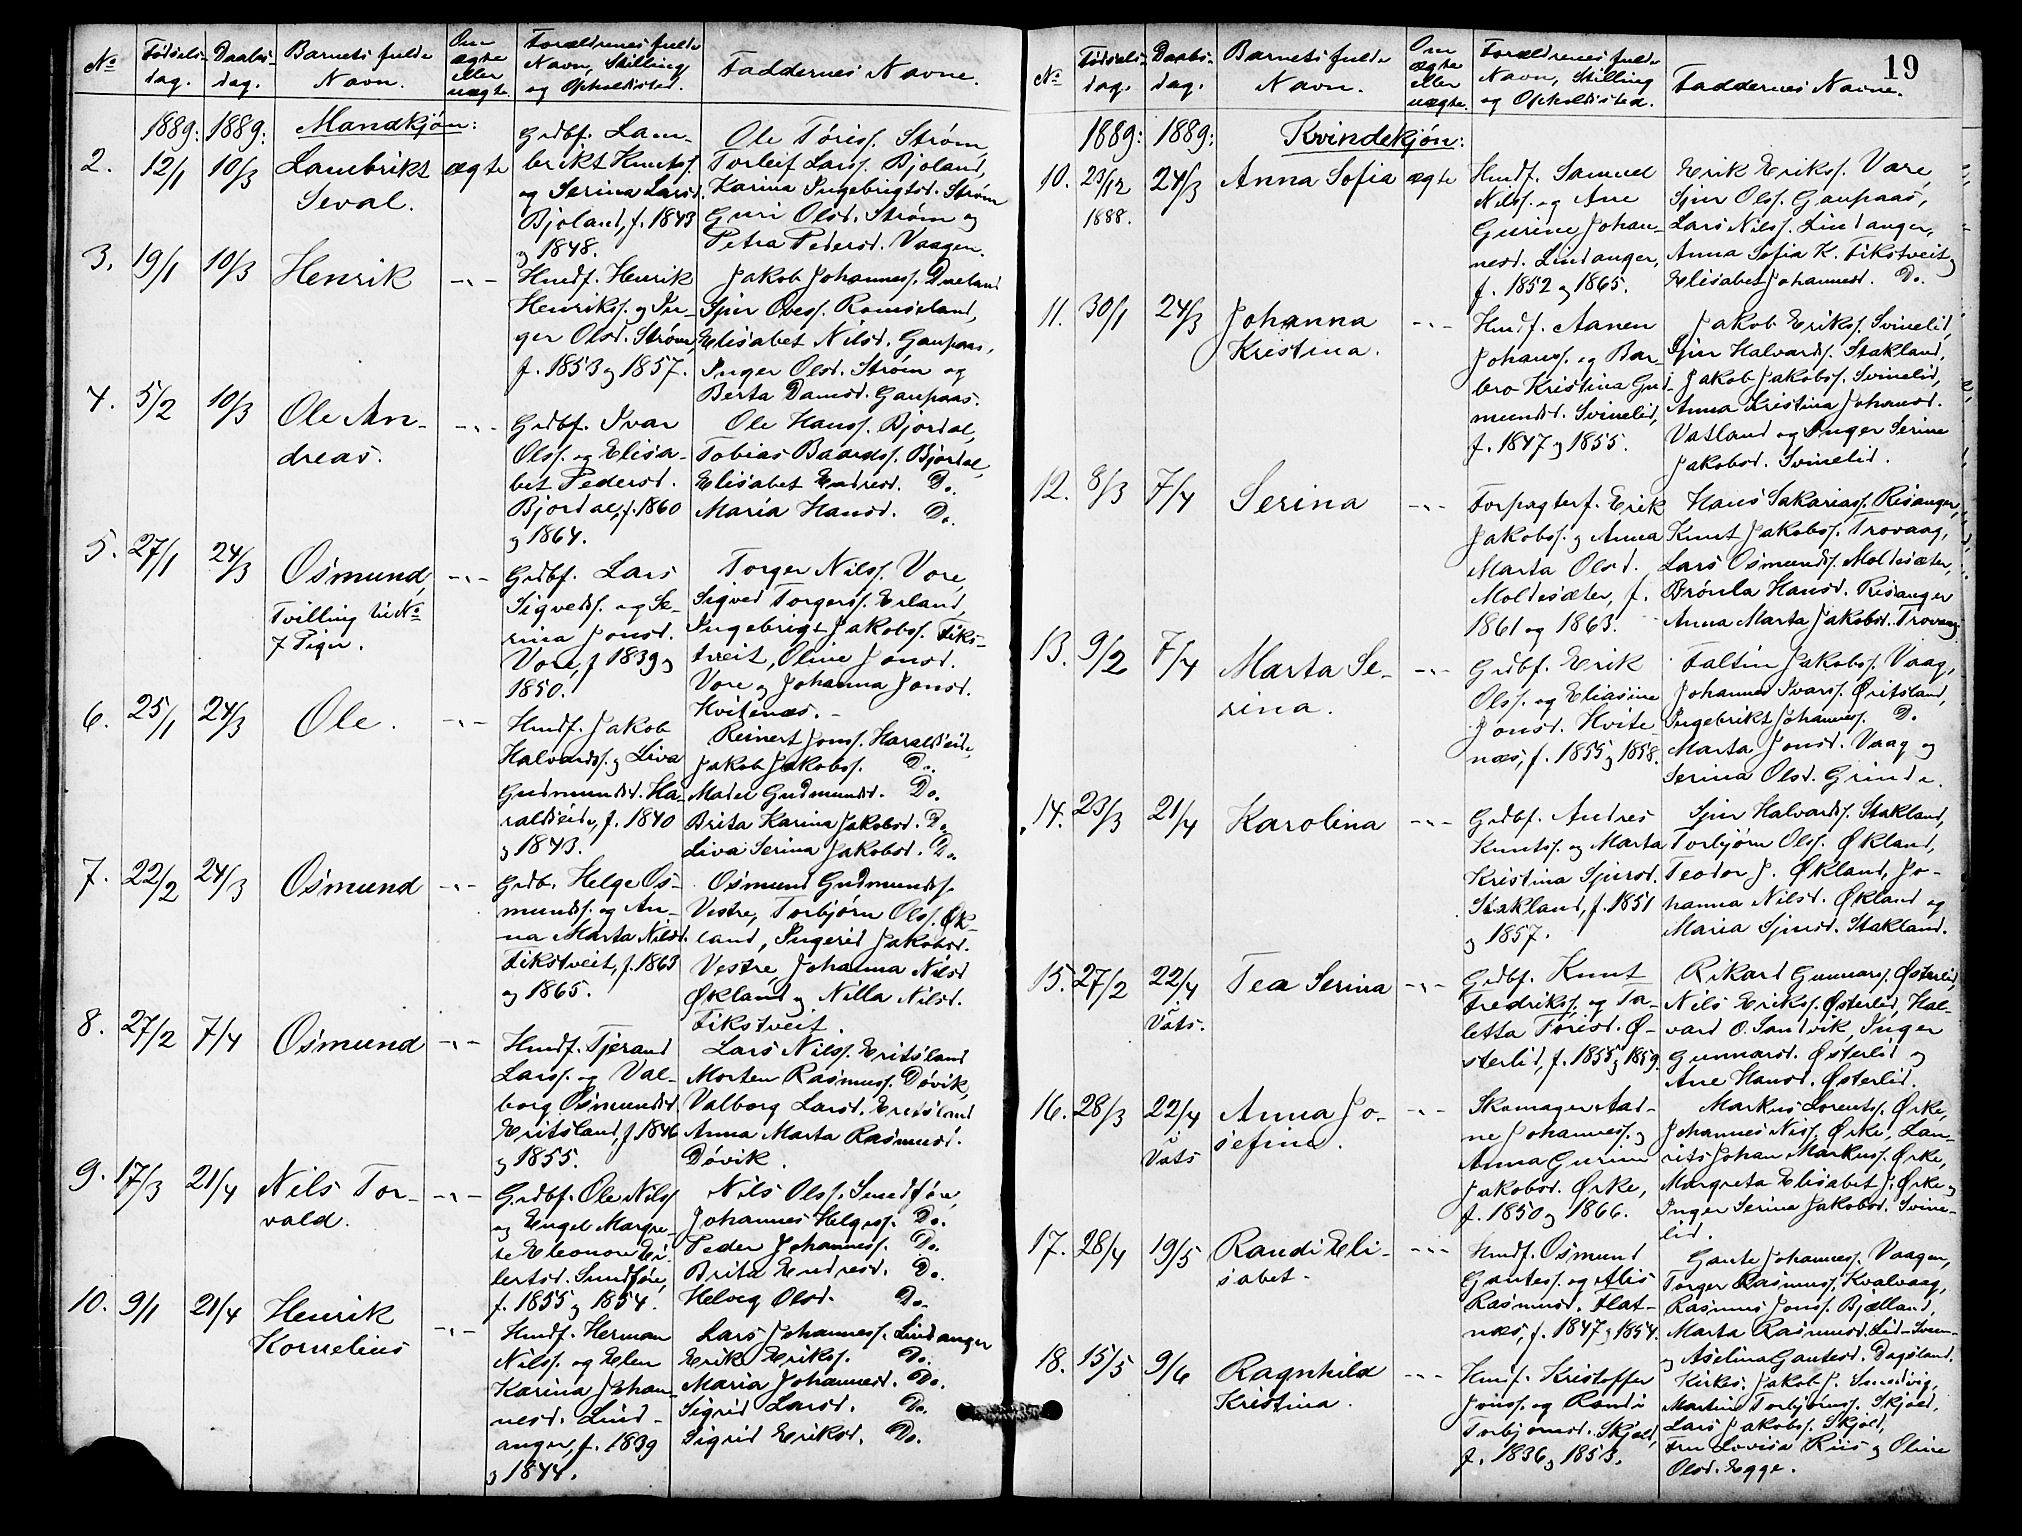 19
No
Fødsels-
dag.
Daabs-
dag.
Barnets fulde
Navn.
Om
ægte
eller
uægte.
Forældrenes fulde
Navn, Stilling
og Opholdssted.
Faddernes Navne.
1889: 1889: Mandkjøn:
2. 12/1 10/3 Lambrikt
Seval.
ægte
Grdbf. Lam-
brikt Knuts.
og Serina Larsd.
Bjoland, f. 1843
og 1848.
Ole Tøriss. Strøm
Torleif Larss. Bjoland,
Karina Ingebrigtsd. Strøm
Guri Olsd. Strøm og
Petra Pedersd. Vaagen.
3. 19/1 10/3 Henrik
-"-
Husf. Henrik
Henrikss. og In-
ger Olsd. Strøm,
f. 1853 og 1857.
Jakob Johanness. Dueland
Sjur Oves. Romsland,
Elisabet Nilsd. Gaupaas,
Inger Olsd. Strøm og
Berta Damsd. Gaupaas.
4. 5/2 10/3 Ole An-
dreas.
-"-
Grdbf. Ivar
Olss. og Elisa-
bet Pedersd.
Bjordal, f. 1860
og 1864.
Ole Hanss. Bjordal,
Tobias Baards. Bjordal,
Elisabet Endresd. Do.
Maria Hansd. Do.
5. 27/1 24/3 Osmund,
Tvilling til No
7 Piger.
-"-
Grdbf. Lars
Sigveds. og Se-
rina Jonsd.
Vore, f 1839 og
1850.
Torger Nilss. Vore,
Sigved Torgerss. Erland,
Ingebrigt Jakobs. Fiks-
tveit, Oline Jonsd.
Vore og Johanna Jonsd.
Hvitenæs.
6. 25/1 24/3 Ole.
-"-
Husf. Jakob
Halvards. og Liva
Gudmundsd. Ha-
raldseide, f. 1840
og 1843.
Reinert Jonss. Haraldseide,
Jakob Jakobs. Do.
Madel Gudmundsd. Do.
Brita Karina Jakobsd. Do.
Liva Serina Jakobsd. Do.
7. 22/2 24/3 Osmund
-"-
Grdb. Helge Os-
munds. og An-
na Marta Nilsd.
Fikstveit, f. 1863
og 1865.
Osmund Gudmunds.
Vestre, Torbjørn Olss. Øk-
land, Ingerid Jakobsd.
Vestre, Johanna Nilsd
Økland og Nilla Nilsd.
Fikstveit.
8. 27/2 7/4 Osmund
-"-
Husf. Tjerand
Larss. og Val-
borg Osmundsd.
Eritsland, f 1846
og 1855.
Lars Nilss. Eritsland
Morten Rasmuss. Døvik,
Valborg Larsd. Eritsland
Anna Marta Rasmusd.
Døvik.
9. 17/3 21/4 Nils Tor-
vald.
-"-
Grdbf. Ole Nilss
og Engel Margre-
te Eleonore Ei-
lertsd. Sundføre,
f. 1855 og 1854.
Nils Olss. Sundføre,
Johannes Helgess. Do.
Peder Johanness. Do.
Brita Endresd. Do.
Helvig Olsd. Do.
10. 9/1 21/4 Henrik
Kornelius
-"-
Husf. Herman
Nilss. og Elen
Karina Johan-
nesd. Lind-
anger, f. 1839
og 1844.
Lars Johanness. Lindanger
Erik Erikss. Do.
Maria Johannesd. Do.
Sigrid Larsd. Do.
Sigrid Eriksd. Do.
No
Fødsels-
dag.
Daabs-
dag.
Barnets fulde
Navn.
Om
ægte
eller
uægte.
Forældrenes fulde
Navn, Stilling
og Opholdssted.
Faddernes Navne.
1889: 1889: Kvindekjøn:
10. 23/12 24/3 Anna Sofia
1888.
ægte
Husf. Samuel
Nilss. og Ane
Gurine Johan-
nesd. Lindanger,
f. 1852 og 1865.
Erik Erikss. Vare,
Sjur Olss. Gaupaas,
Lars Nilss. Lindanger,
Anna Sofia K. Fikstveit og
Elisabet Johannesd. Do.
11. 30/1 24/3 Johanna
Kristina.
-"-
Husf. Aanen
Johanss. og Bar-
bro Kristina Gud-
mundsd. Svinelid,
f. 1847 og 1855.
Jakob Erikss. Svinelid,
Sjur Halvards. Stakland,
Jakob Jakobs. Svinelid,
Anna Kristina Johansd.
Vatland og Inger Serine
Jakobsd. Svinelid.
12. 8/3 7/4 Serina
-"-
Forpagterf. Erik
Jakobss. og Anna
Marta Olsd.
Moldesæter, f.
1861 og 1863.
Hans Sakariass. Risanger,
Knut Jakobss. Trovaag,
Lars Osmunds. Moldesæter,
Brønla Hansd. Risanger
Anna Marta Jakobsd. Trovaag
13. 9/2 7/4 Marta Se-
rina.
-"-
Grdbf. Erik
Olss. og Eliasine
Jonsd. Hvite-
næs, f. 1855 og 1858.
Faltin Jakobs. Vaag,
Johannes Ivarss. Øritsland,
Ingebrikt Johanness. Do.
Marta Jonsd. Vaag og
Serina Olsd. Grinde.
14. 23/3 21/4 Karolina
-"-
Grdbf. Andres
Knutss. og Marta
Kristina Sjursd.
Stakland, f. 1851
og 1857.
Sjur Halvards. Stakland,
Torbjørn Olss. Økland,
Teodor J. Økland, Jo-
hanna Nilsd. Økland og
Maria Sjursd. Stakland.
15. 27/2 22/4 Tea Serina
Vats.
-"-
Grdbf. Knut
Fredrikss. og Ta-
letta Torisd. Ø-
sterlid, f. 1855 og 1859.
Rikard Gunnars. Østerlid,
Nils Erikss. Østerlid, Hal-
vard O. Sandvik, Inger
Gunnarsd. Østerlid og
Ane Hansd. Østerlid.
16. 28/3 22/4 Anna Jo-
sefine.
Vats
-"-
Skomager Aad-
ne Johanness. og
Anna Gurine
Jakobsd. Ørke,
f. 1850 og 1866.
Markus Lorents. Ørke,
Johannes Nilss. Ørke, Lau-
rits Johan Markuss. Ørke,
Margreta Elisabet J. Ørke og
Inger Serine Jakobsd. Svine-
lid.
17. 28/4 19/5 Randi Eli-
sabet.
-"-
Husf. Osmund
Gautess. og Alis
Rasmusd. Flat-
næs, f. 1847 og 1854.
Gaute Johanness. Vaagen,
Torger Rasmuss. Kvalvaag,
Rasmus Jonss. Bjælland,
Marta Rasmusd.
og Aselina Gautesd. Dagsland.
18. 15/5 9/6 Ragnhild
Kristina.
-"-
Husf. Kristoffer
Jonss. og Randi
Torbjørnsd. Skjold,
f. 1836 og 1853.
Kirkes. Jakob J. Smedvig,
Martin Torbjørnss. Skjold,
Lars Jakobs. Skjold,
Fru Lovisa Riis og Oline
Olsd. Egge.